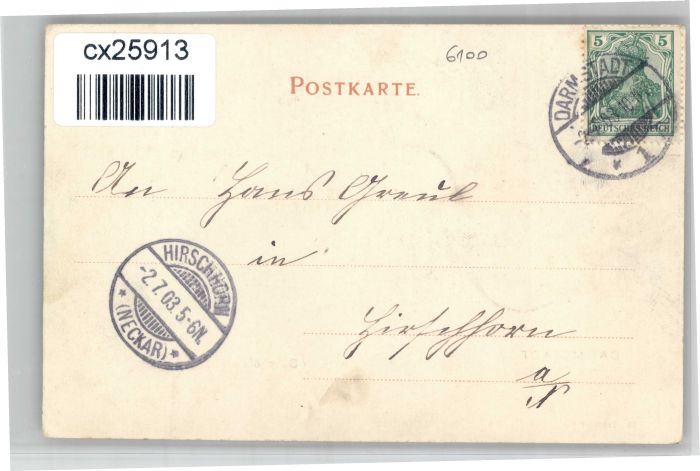 cx25913
6100
POSTKARTE.
5 5
DEUTSCHES REICH
DARMSTADT
* 1
An Hans Greul
in
Hirschhorn
a/N
HIRSCHHORN
-2.7.03.5-6N.
* (NECKAR) *